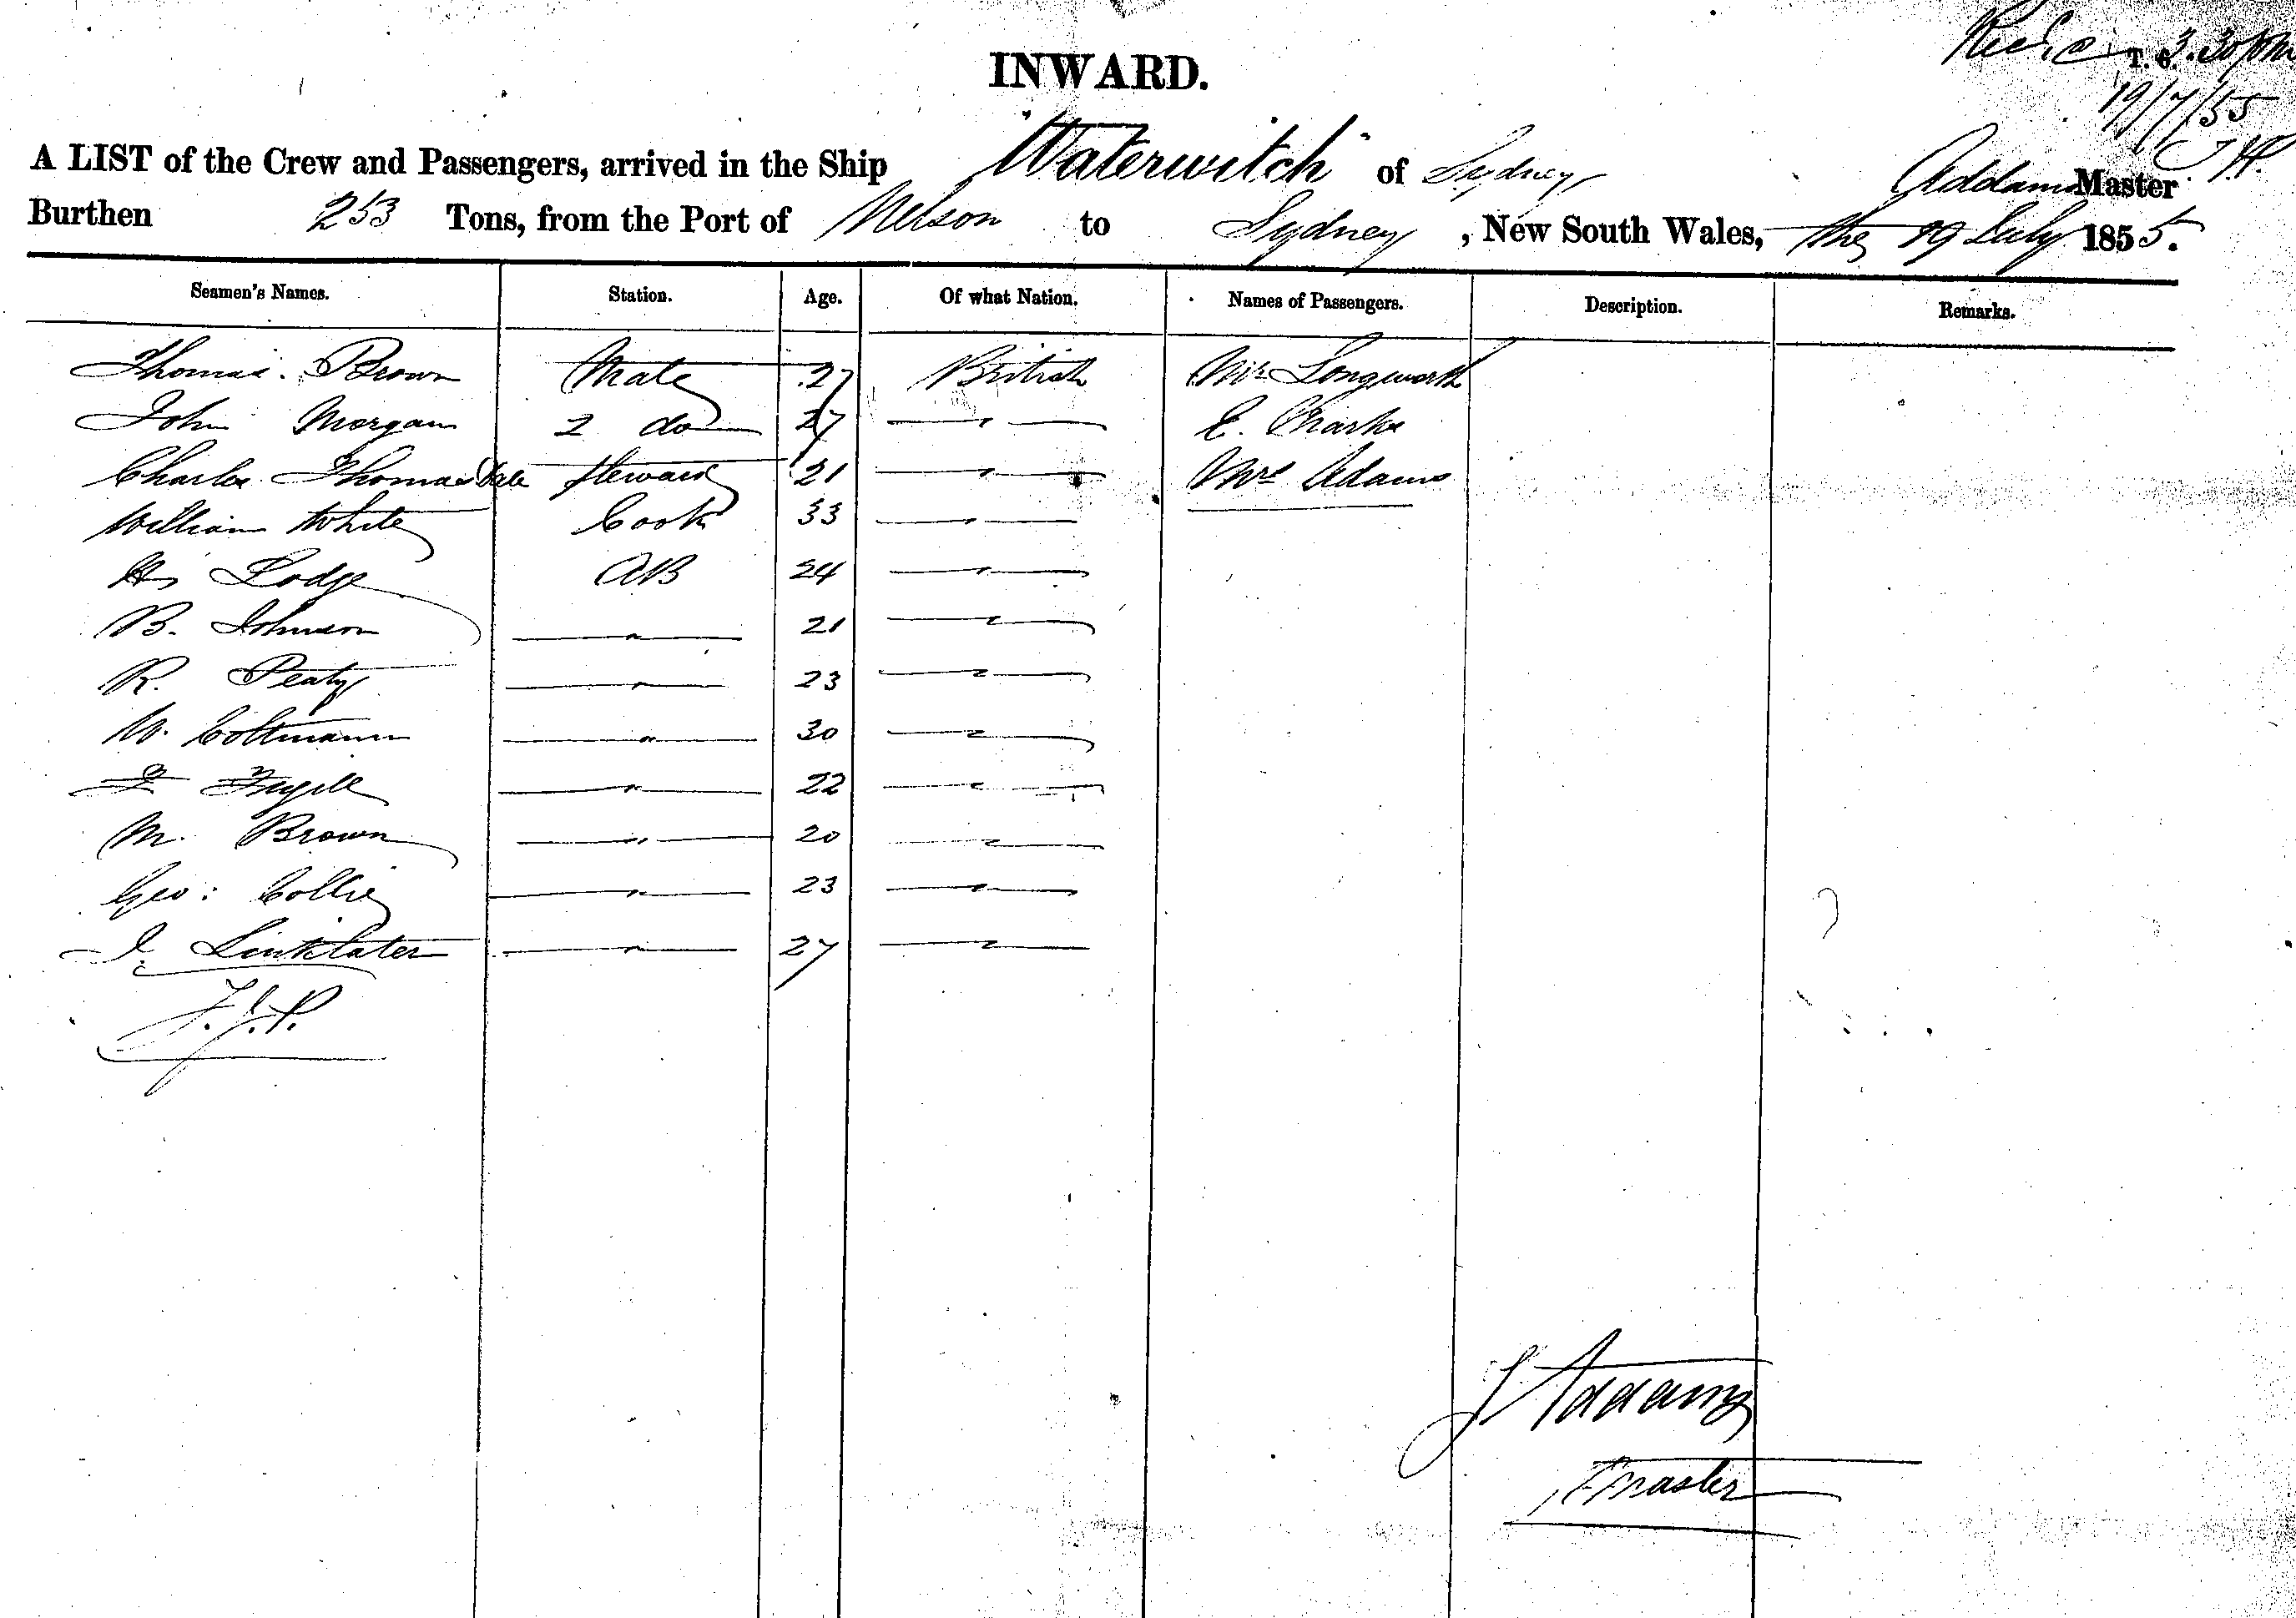 INWARD.
3.30 pm
19/7/55
A LIST of the Crew and Passengers, arrived in the Ship "Waterwitch" of Sydney Addams Master
Burthen 253 Tons, from the Port of Nelson to Sydney, New South Wales, the 19 July 1855.
Seamen's Names. Station. Age. Of what Nation. Names of Passengers. Description. Remarks.
Thomas Brown Mate 27 British Mr Longworth
John Morgan 2 do 27 — " — E.
Charles Thomas Steward 21 — " — Mrs Adams
William White Cook 33 — " —
Hy Lodge AB 24 — " —
B. Johnson — " — 21 — " —
R. Peaty — " — 23 — " —
W. Coltmann — " — 30 — " —
— " — 22 — " —
M. Brown — " — 20 — " —
Geo: Collie — " — 23 — " —
J. Linklater — " — 27 — " —
F.J.P.
J Addams
Master